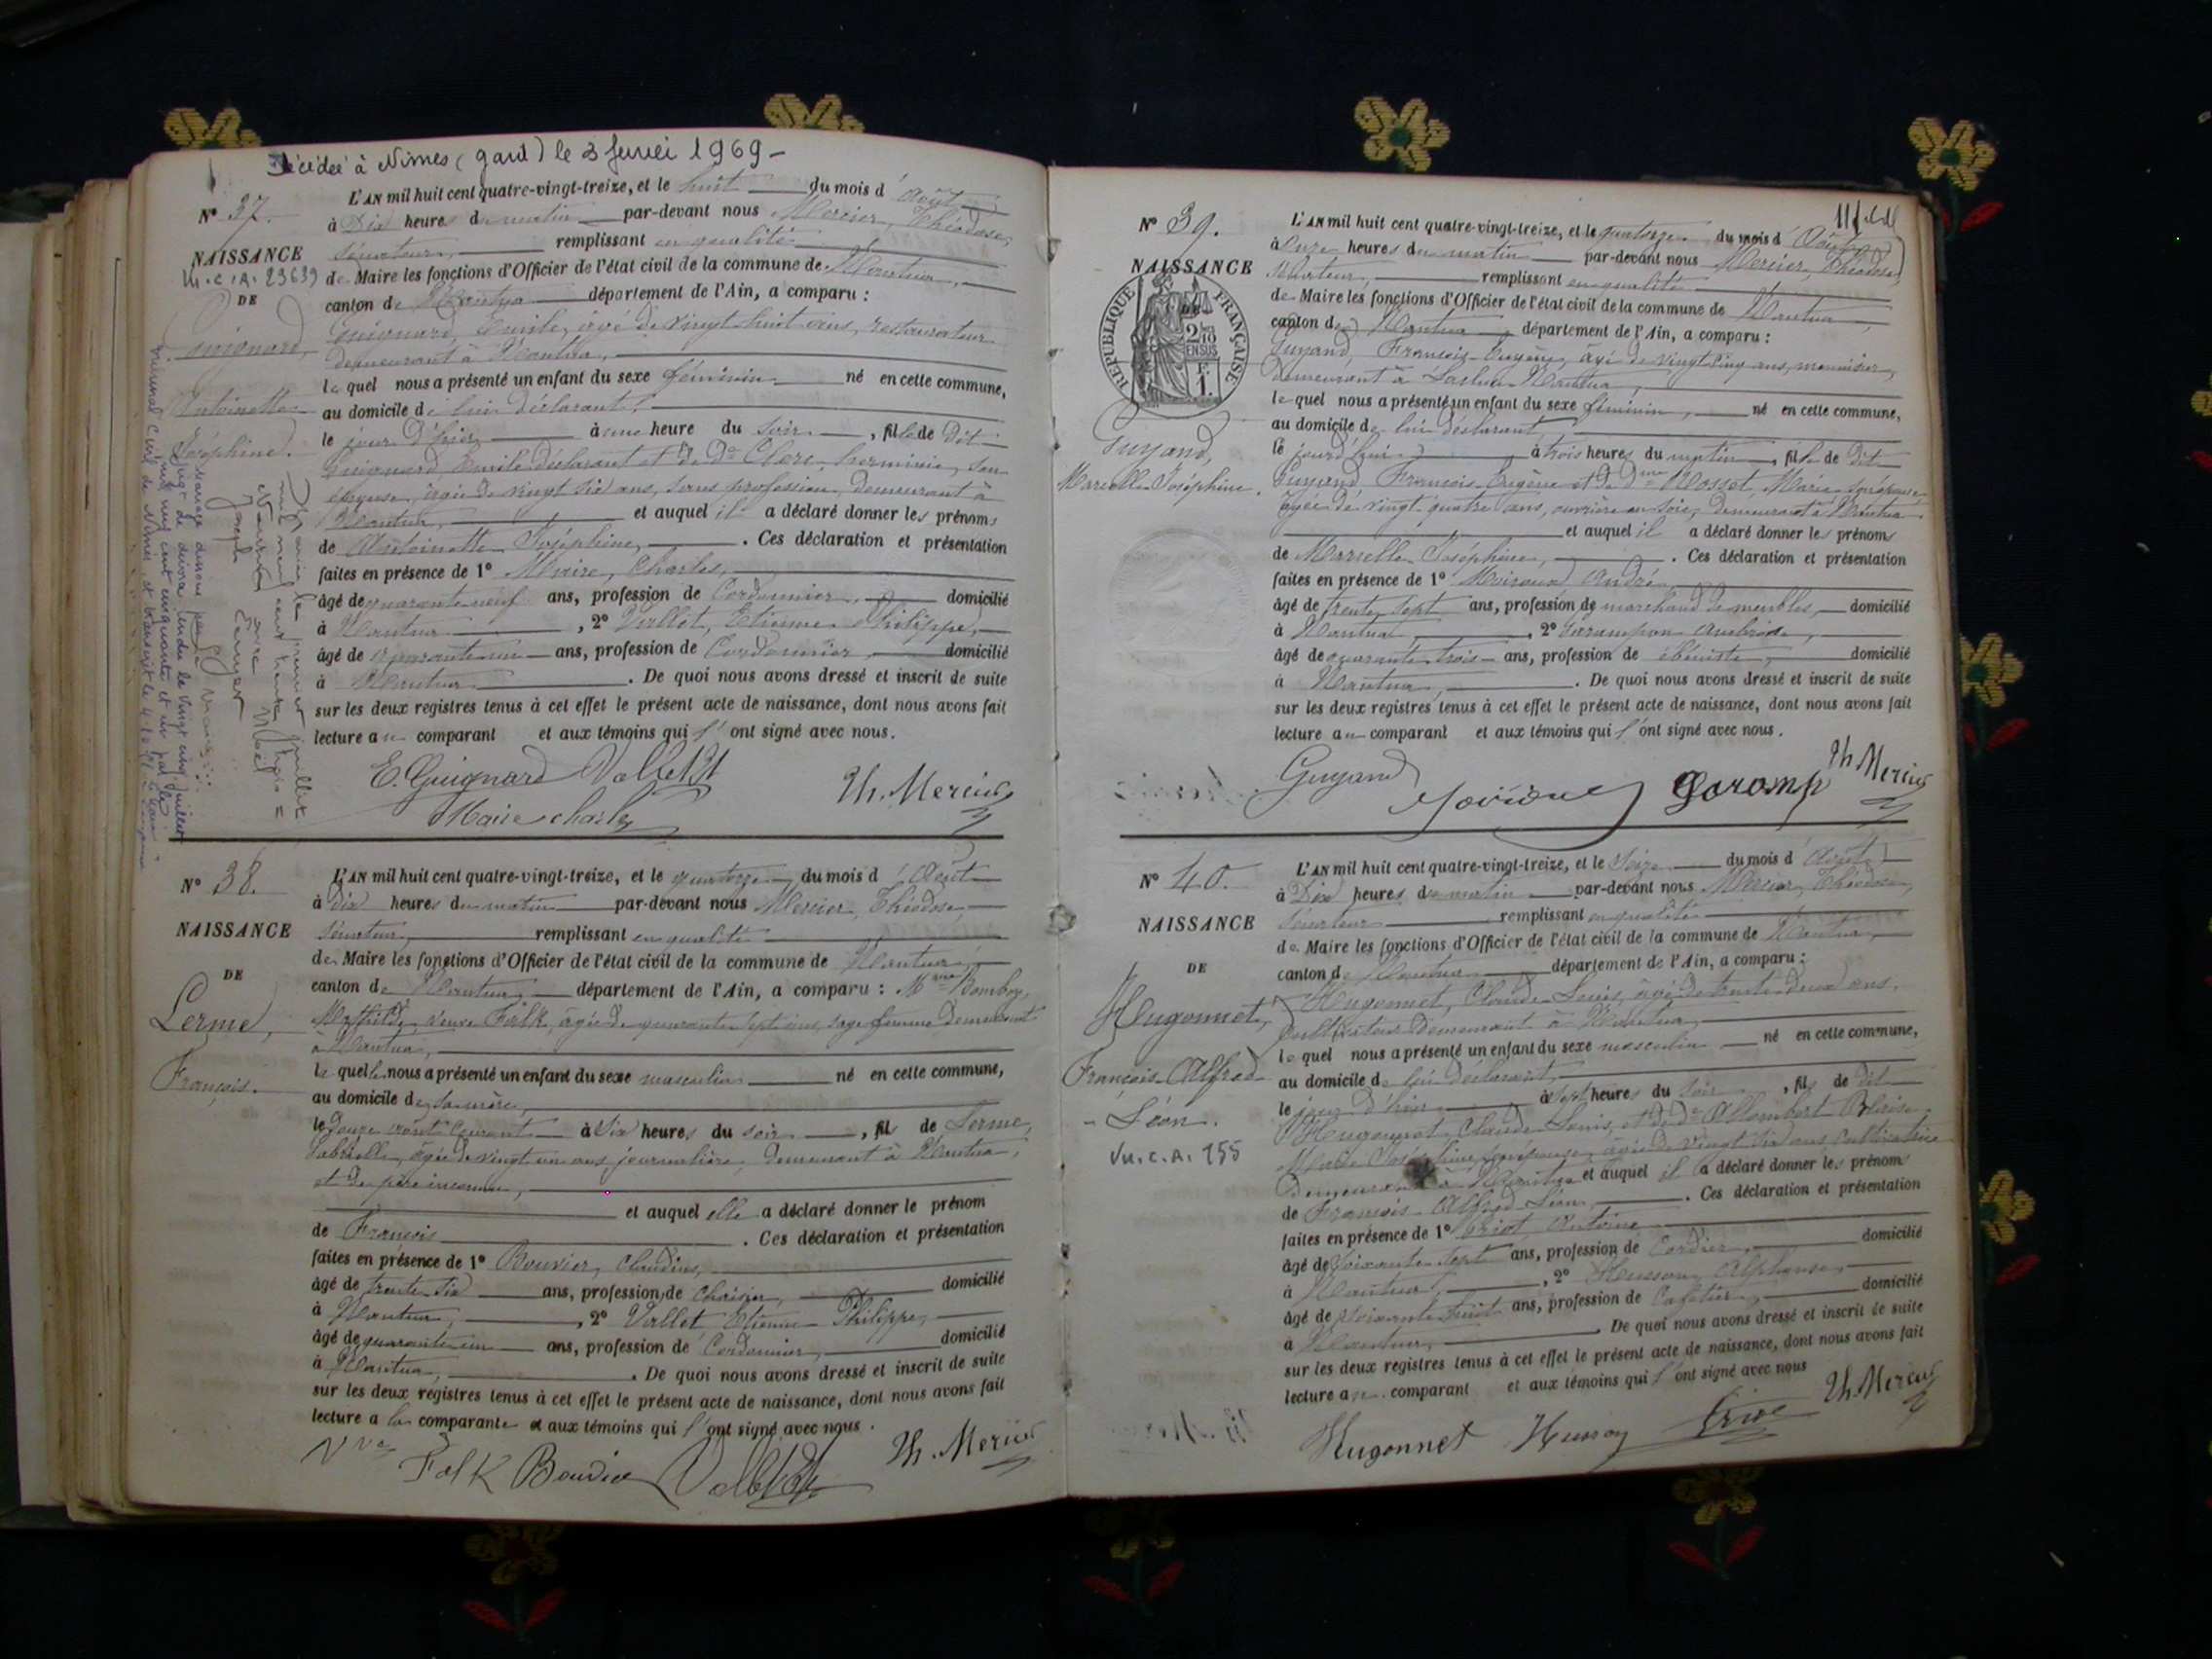 Décédée à Nîmes (gard) le 3 février 1969 -
N° 37.
NAISSANCE
DE
Guignard,
Antoinette
Joséphine.
L'AN mil huit cent quatre-vingt-treize, et le huit du mois d'Août
à Dix heures du matin par-devant nous Mercier, Théodose,
Sénateur, remplissant en qualité
de Maire les fonctions d'Officier de l'état civil de la commune de Nantua,
canton de Nantua département de l'Ain, a comparu :
Guignard, Emile, âgé de vingt huit ans, restaurateur
demeurant à Nantua,
lequel nous a présenté un enfant du sexe féminin né en cette commune,
au domicile de lui déclarant,
le jour d'hier à une heure du soir, fille de dit
Guignard, Emile déclarant et de De Clerc, herminie, son
épouse, âgée de vingt six ans, sans profession, demeurant à
Nantua, et auquel il a déclaré donner les prénoms
de Antoinette Joséphine, . Ces déclaration et présentation
faites en présence de 1° Maire, Charles,
âgé de quarante neuf ans, profession de Cordonnier, domicilié
à Nantua, 2° Vallet, Etienne Philippe,
âgé de quarante un ans, profession de Cordonnier, domicilié
à Nantua. De quoi nous avons dressé et inscrit de suite
sur les deux registres tenus à cet effet le présent acte de naissance, dont nous avons fait
lecture au comparant et aux témoins qui l'ont signé avec nous.
E. Guignard Vallet
Maire charles
Th. Mercier
N° 38.
NAISSANCE
DE
Lerme,
François.
L'AN mil huit cent quatre-vingt-treize, et le quatorze du mois d'Août
à dix heures du matin par-devant nous Mercier, Théodose,
Sénateur, remplissant en qualité
de Maire les fonctions d'Officier de l'état civil de la commune de Nantua,
canton de Nantua, département de l'Ain, a comparu : Mme Bomboy,
Mathilde veuve Falk, âgée de quarante sept ans, sage femme demeurant
à Nantua,
lequelle nous a présenté un enfant du sexe masculin né en cette commune,
au domicile de sa mère,
le douze août courant à Six heures du soir, fils de Lerme,
âgée de vingt un ans journalière, demeurant à Nantua,
et de père inconnu,
et auquel elle a déclaré donner le prénom
de François . Ces déclaration et présentation
faites en présence de 1° Bouvier, Claudius,
âgé de trente six ans, profession de domicilié
à Nantua, 2° Vallet, Etienne Philippe,
âgé de quarante un ans, profession de Cordonnier, domicilié
à Nantua, . De quoi nous avons dressé et inscrit de suite
sur les deux registres tenus à cet effet le présent acte de naissance, dont nous avons fait
lecture à la comparante et aux témoins qui l'ont signé avec nous.
Vve Falk Bouvier Vallet Th. Mercier
N° 39.
NAISSANCE
DE
RÉPUBLIQUE FRANÇAISE
2/10 EN SUS
1 F
Guyand,
Marcelle Joséphine.
L'AN mil huit cent quatre-vingt-treize, et le quatorze du mois d'Août
à onze heures du matin par-devant nous Mercier, Théodose,
Sénateur, remplissant en qualité
de Maire les fonctions d'Officier de l'état civil de la commune de Nantua,
canton de Nantua, département de l'Ain, a comparu :
Guyand, François Eugène, âgé de vingt cinq ans, menuisier,
demeurant à Nantua,
lequel nous a présenté un enfant du sexe féminin, né en cette commune,
au domicile de lui déclarant
le jourd'hui à trois heures du matin, fille de dit
Guyand François Eugène et de Dme Mosset, Marie, son épouse,
âgée de vingt quatre ans, ouvrière en soie, demeurant à Nantua
et auquel il a déclaré donner les prénoms
de Marcelle Joséphine, . Ces déclaration et présentation
faites en présence de 1° Moiroud André,
âgé de trente sept ans, profession de marchand de meubles, domicilié
à Nantua, 2° Garampon Ambroise,
âgé de quarante trois ans, profession de ébéniste, domicilié
à Nantua, . De quoi nous avons dressé et inscrit de suite
sur les deux registres tenus à cet effet le présent acte de naissance, dont nous avons fait
lecture au comparant et aux témoins qui l'ont signé avec nous.
Guyand Moiroud Garamp Th Mercier
N° 40.
NAISSANCE
DE
Hugonnet,
François Alfred
- Léon.
Vu.c.A. 155
L'AN mil huit cent quatre-vingt-treize, et le Seize du mois d'Août
à Dix heures du matin par-devant nous Mercier, Théodose,
Sénateur remplissant en qualité
de Maire les fonctions d'Officier de l'état civil de la commune de Nantua,
canton de Nantua département de l'Ain, a comparu :
Hugonnet, Claude Louis, âgé de trente deux ans,
cultivateur demeurant à Nantua,
lequel nous a présenté un enfant du sexe masculin né en cette commune,
au domicile de lui déclarant,
le jour d'hier à sept heures du soir, fils de dit
Hugonnet, Claude Louis, et de De Allombert Blaise
Marie Joséphine, son épouse, âgée de vingt six ans cultivatrice
demeurant à Nantua et auquel il a déclaré donner les prénoms
de François Alfred Léon, . Ces déclaration et présentation
faites en présence de 1° Antoine
âgé de soixante sept ans, profession de Cordier, domicilié
à Nantua, 2° Husson Alphonse,
âgé de soixante huit ans, profession de Cafetier, domicilié
à Nantua, . De quoi nous avons dressé et inscrit de suite
sur les deux registres tenus à cet effet le présent acte de naissance, dont nous avons fait
lecture au comparant et aux témoins qui l'ont signé avec nous
Hugonnet Husson Th. Mercier